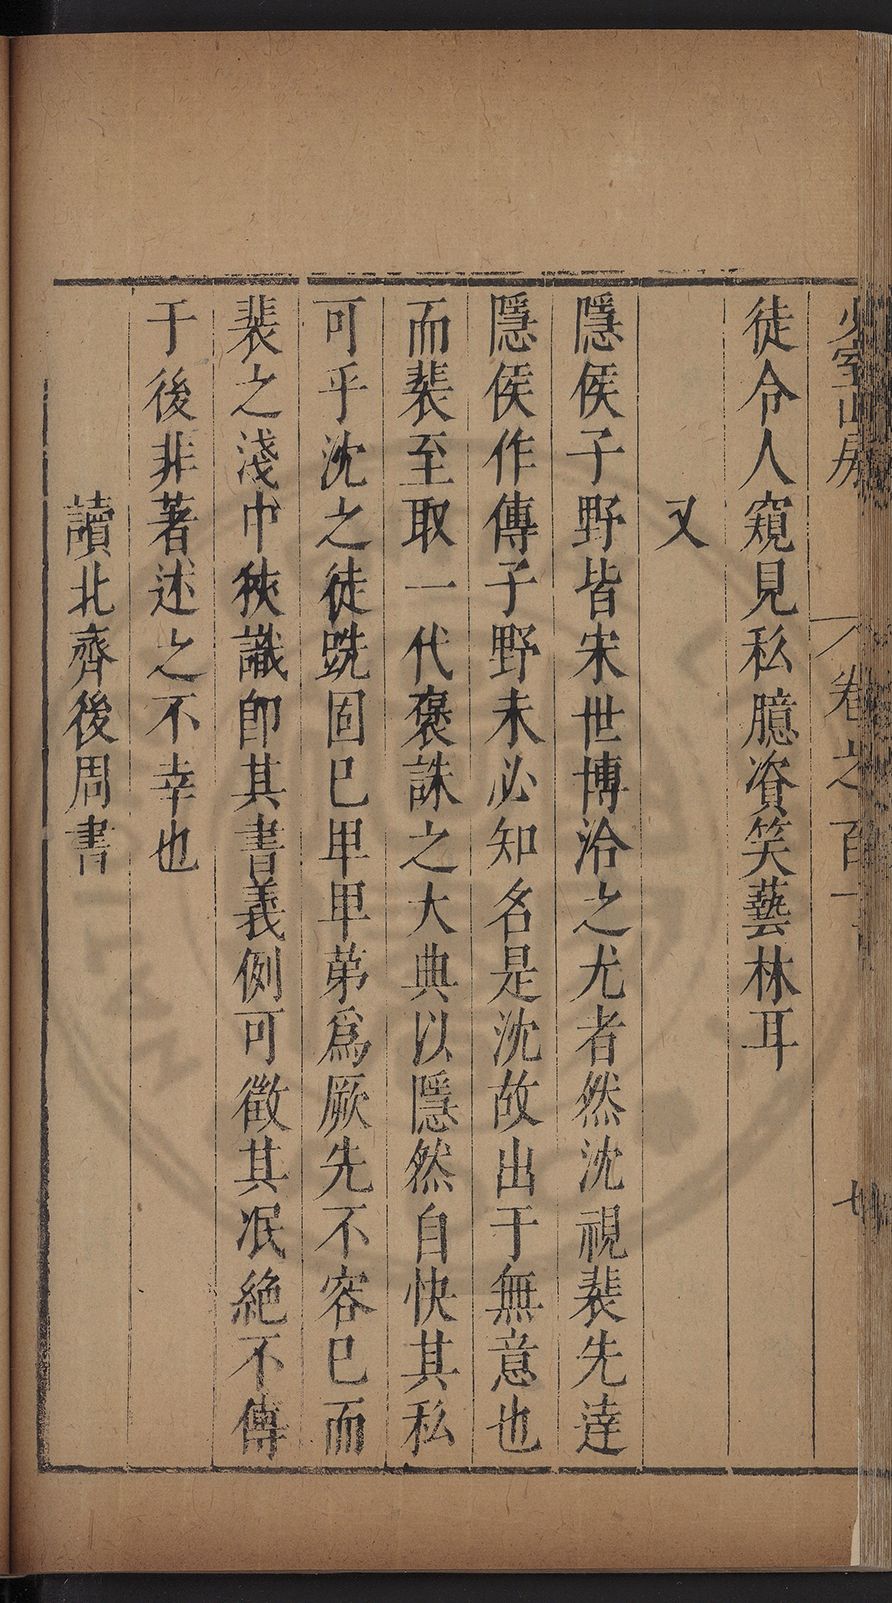 少室山房
卷之百一
徒令人窺見私臆資笑藝林耳
又
隱侯子野皆宋世博洽之尤者然沈視裴先達
隱侯作傳子野未必知名是沈故出于無意也
而裴至取一代褒誅之大典以隱然自快其私
可乎沈之徒跣固已卑卑第為厥先不容已而
裴之淺中狹識即其書義例可徵其泯絕不傳
于後非著述之不幸也
讀北齊後周書